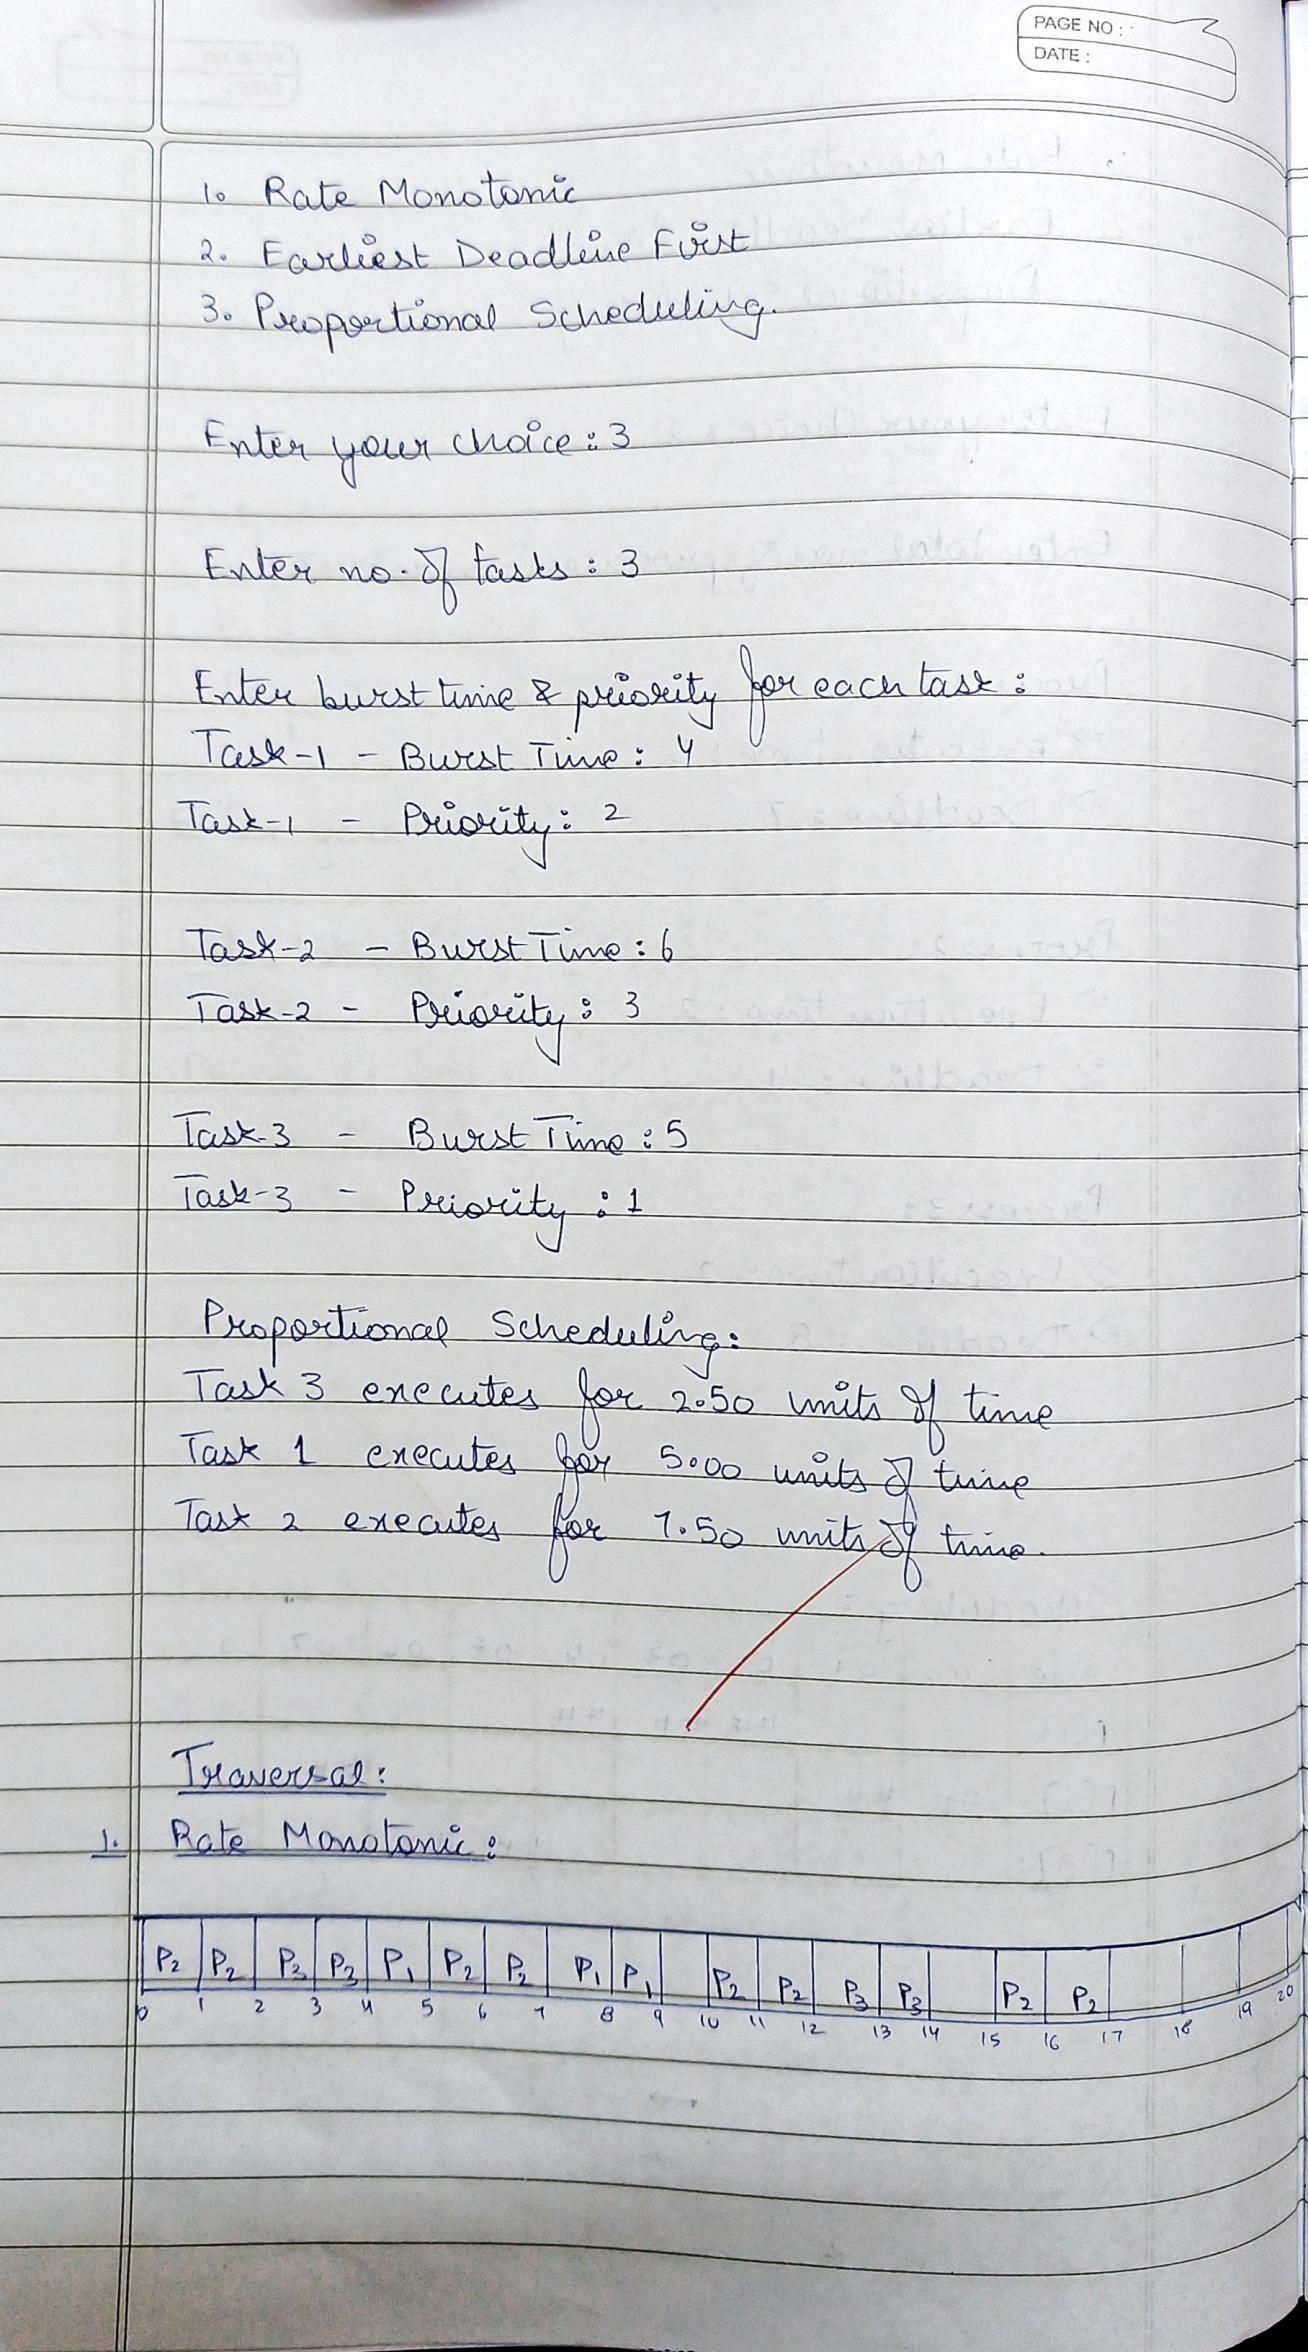 PAGE NO :
DATE :
1. Rate Monotonic
2. Earliest Deadline First
3. Proportional Scheduling.
Enter your choice : 3
Enter no. of tasks : 3
Enter burst time & priority for each task :
Task-1 - Burst Time : 4
Task-1 - Priority : 2
Task-2 - Burst Time : 6
Task-2 - Priority : 3
Task-3 - Burst Time : 5
Task-3 - Priority : 1
Proportional Scheduling :
Task 3 executes for 2.50 units of time
Task 1 executes for 5.00 units of time
Task 2 executes for 7.50 units of time.
Traversal :
1. Rate Monotonic :
P2 P2 P3 P3 P1 P2 P2 P1 P1 P2 P2 P3 P3 P2 P2
0 1 2 3 4 5 6 7 8 9 10 11 12 13 14 15 16 17 18 19 20